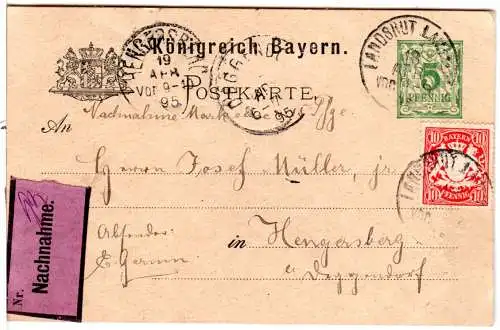 Königreich Bayern.
POSTKARTE.
HENGERSBERG
19
APR
VOR 9-
95
DEGG
95
LANDSHUT
VOR
5
PFENNIG
Nachnahme Mark
An
Herrn Josef Müller, jr.
BAYERN
10 10
PFENNIG
LANDSHUT
Nr.
Nachnahme.
Absender
in Hengersberg
Deggendorf